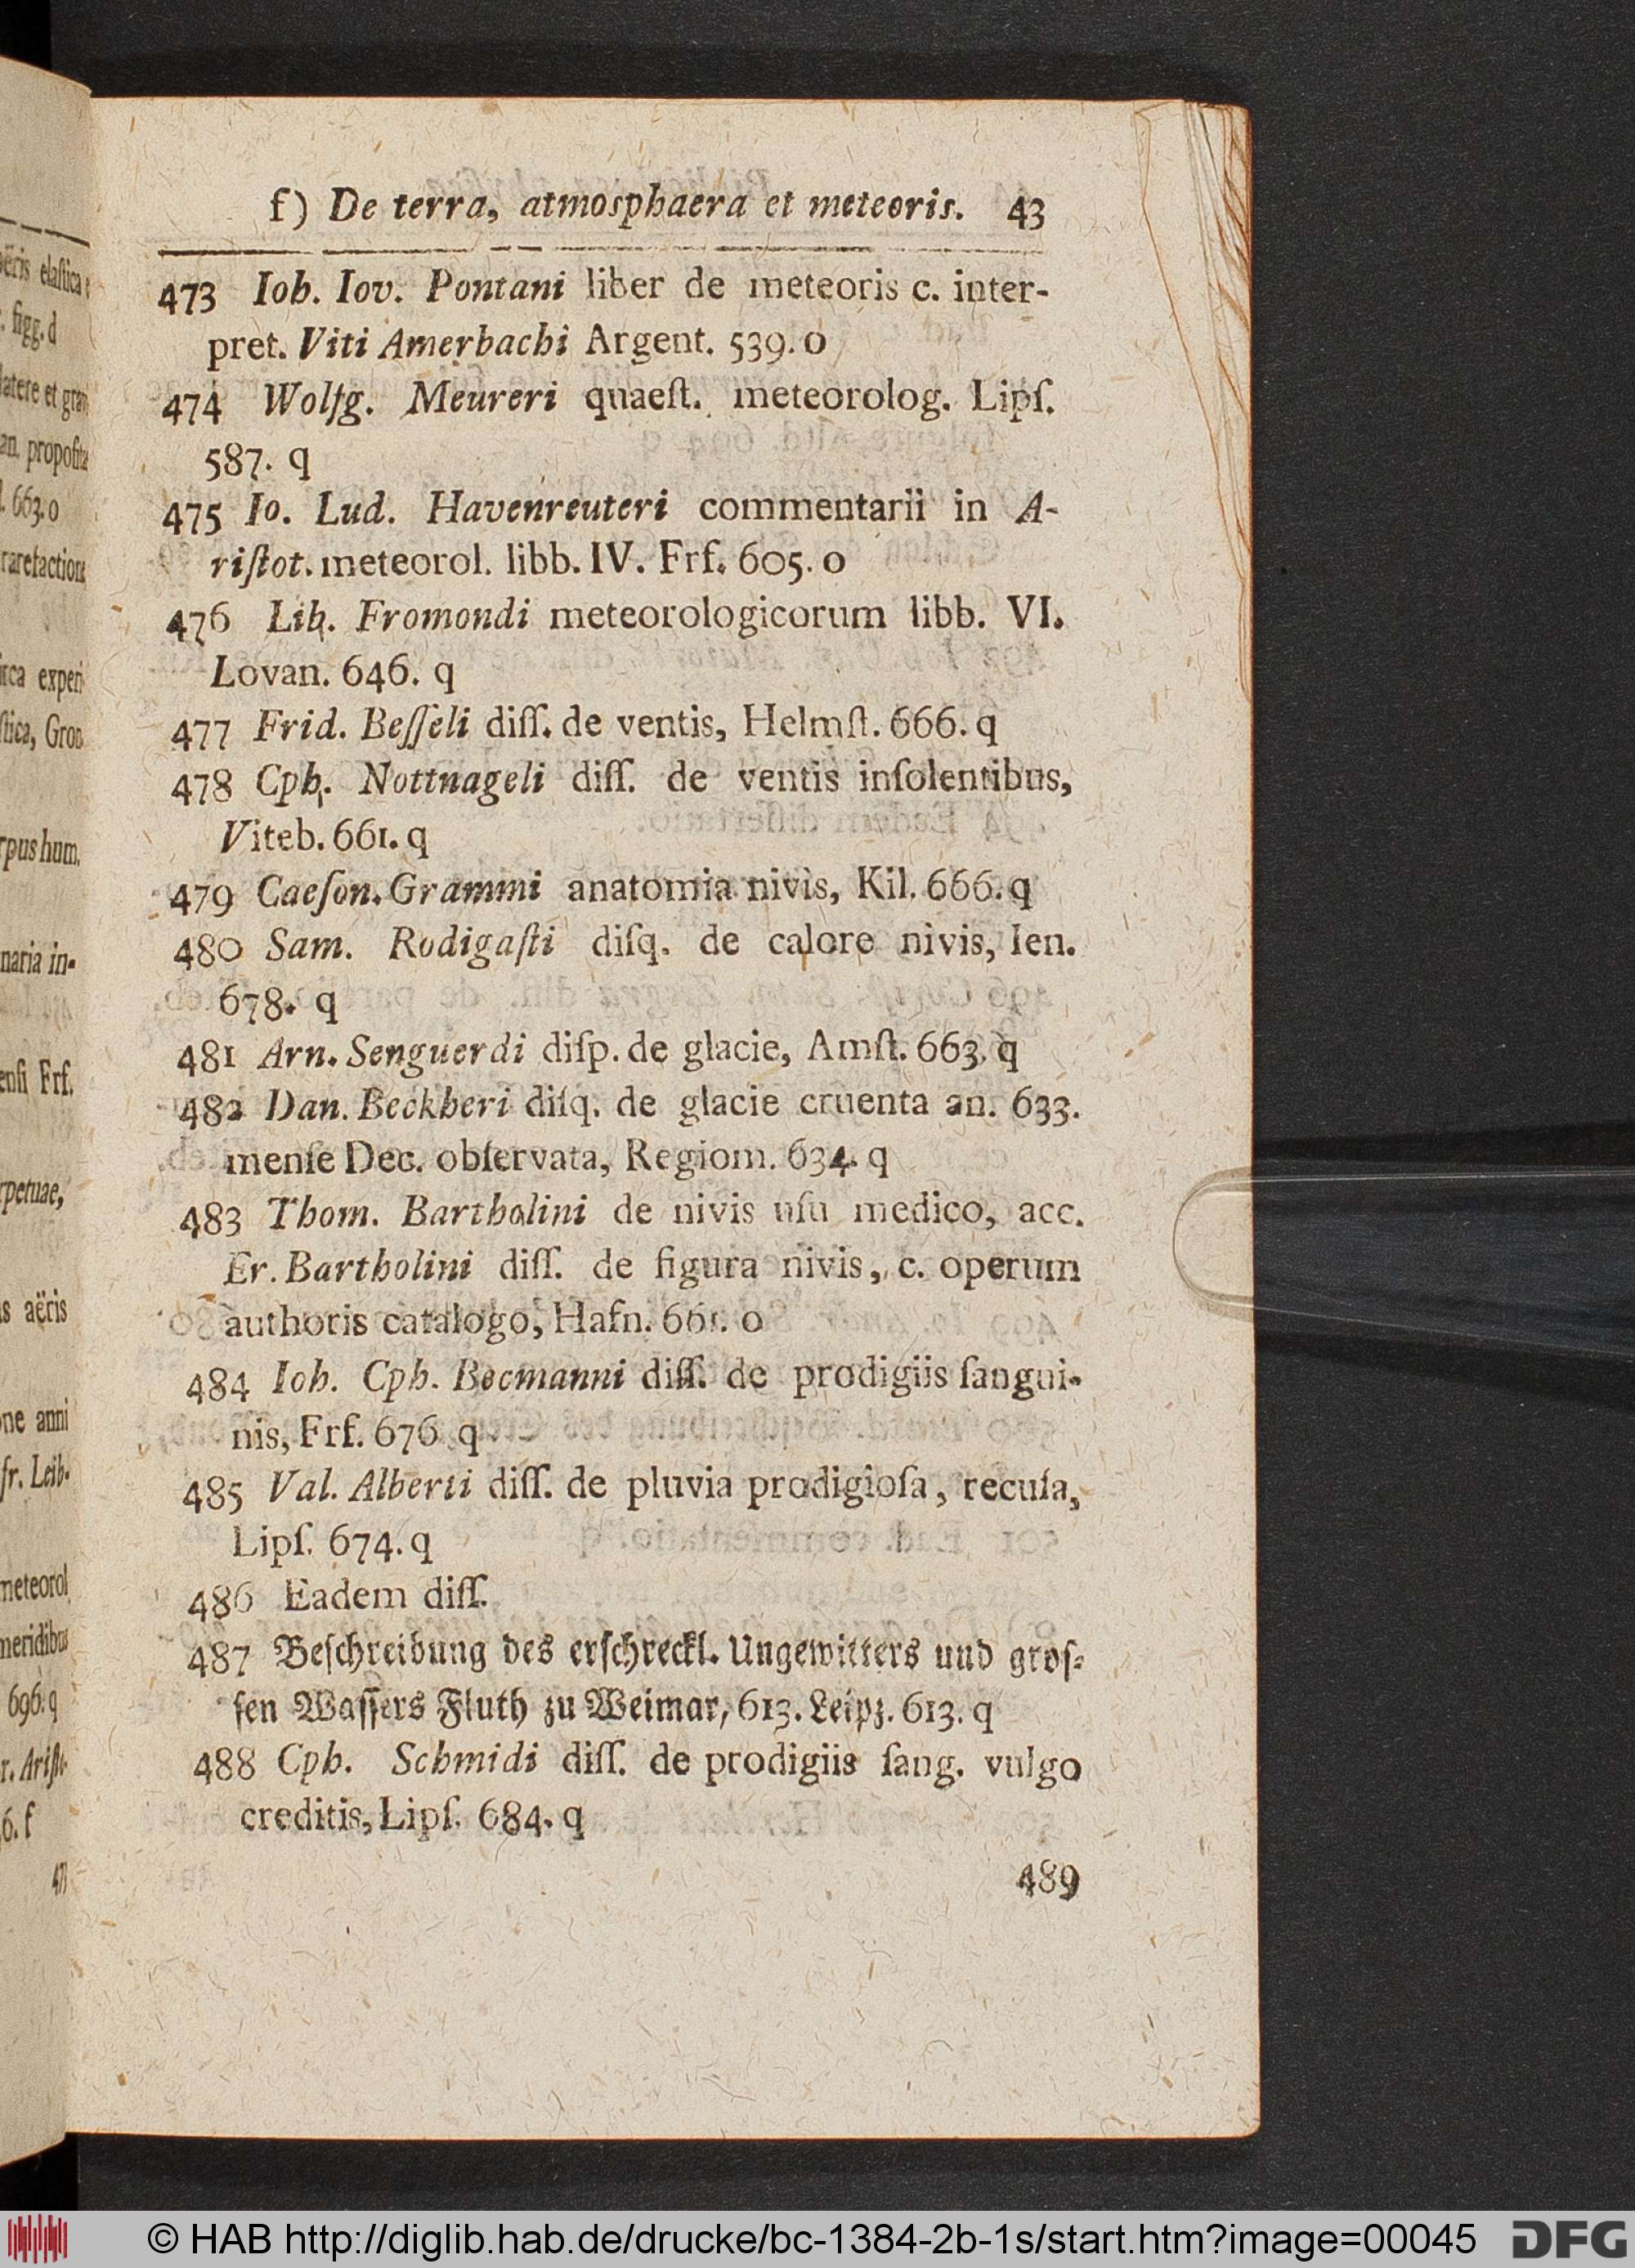 f) De terra, atmosphaera et meteoris. 43
473 Ioh. Iov. Pontani liber de meteoris c. inter-
pret. Viti Amerbachi Argent. 539. o
474 Wolfg. Meureri quaeſt. meteorolog. Lipſ.
587. q
475 Io. Lud. Havenreuteri commentarii in A-
riſtot. meteorol. libb. IV. Frf. 605. o
476 Lib. Fromondi meteorologicorum libb. VI.
Lovan. 646. q
477 Frid. Beſſeli diſſ. de ventis, Helmſt. 666. q
478 Cph. Nottnageli diſſ. de ventis inſolentibus,
Viteb. 661. q
479 Caeſon. Grammi anatomia nivis, Kil. 666. q
480 Sam. Rodigaſti diſq. de calore nivis, Ien.
678. q
481 Arn. Senguerdi diſp. de glacie, Amſt. 663. q
482 Dan. Beckheri diſq. de glacie cruenta an. 633.
menſe Dec. obſervata, Regiom. 634. q
483 Thom. Bartholini de nivis uſu medico, acc.
Er. Bartholini diſſ. de figura nivis, c. operum
authoris catalogo, Hafn. 661. o
484 Ioh. Cph. Becmanni diſſ. de prodigiis ſangui-
nis, Frf. 676. q
485 Val. Alberti diſſ. de pluvia prodigioſa, recuſa,
Lipſ. 674. q
486 Eadem diſſ.
487 Beſchreibung des erſchreckl. Ungewitters und groſ-
ſen Waſſers Fluth zu Weimar, 613. Leipz. 613. q
488 Cph. Schmidi diſſ. de prodigiis ſang. vulgo
creditis, Lipſ. 684. q
489
© HAB http://diglib.hab.de/drucke/bc-1384-2b-1s/start.htm?image=00045
DFG